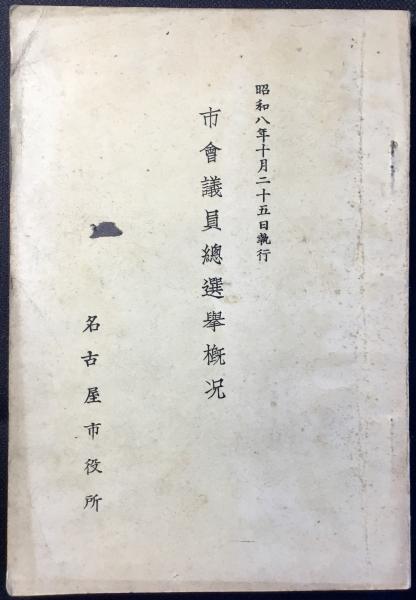 昭和八年十月二十五日執行
市會議員總選擧概况
名古屋市役所